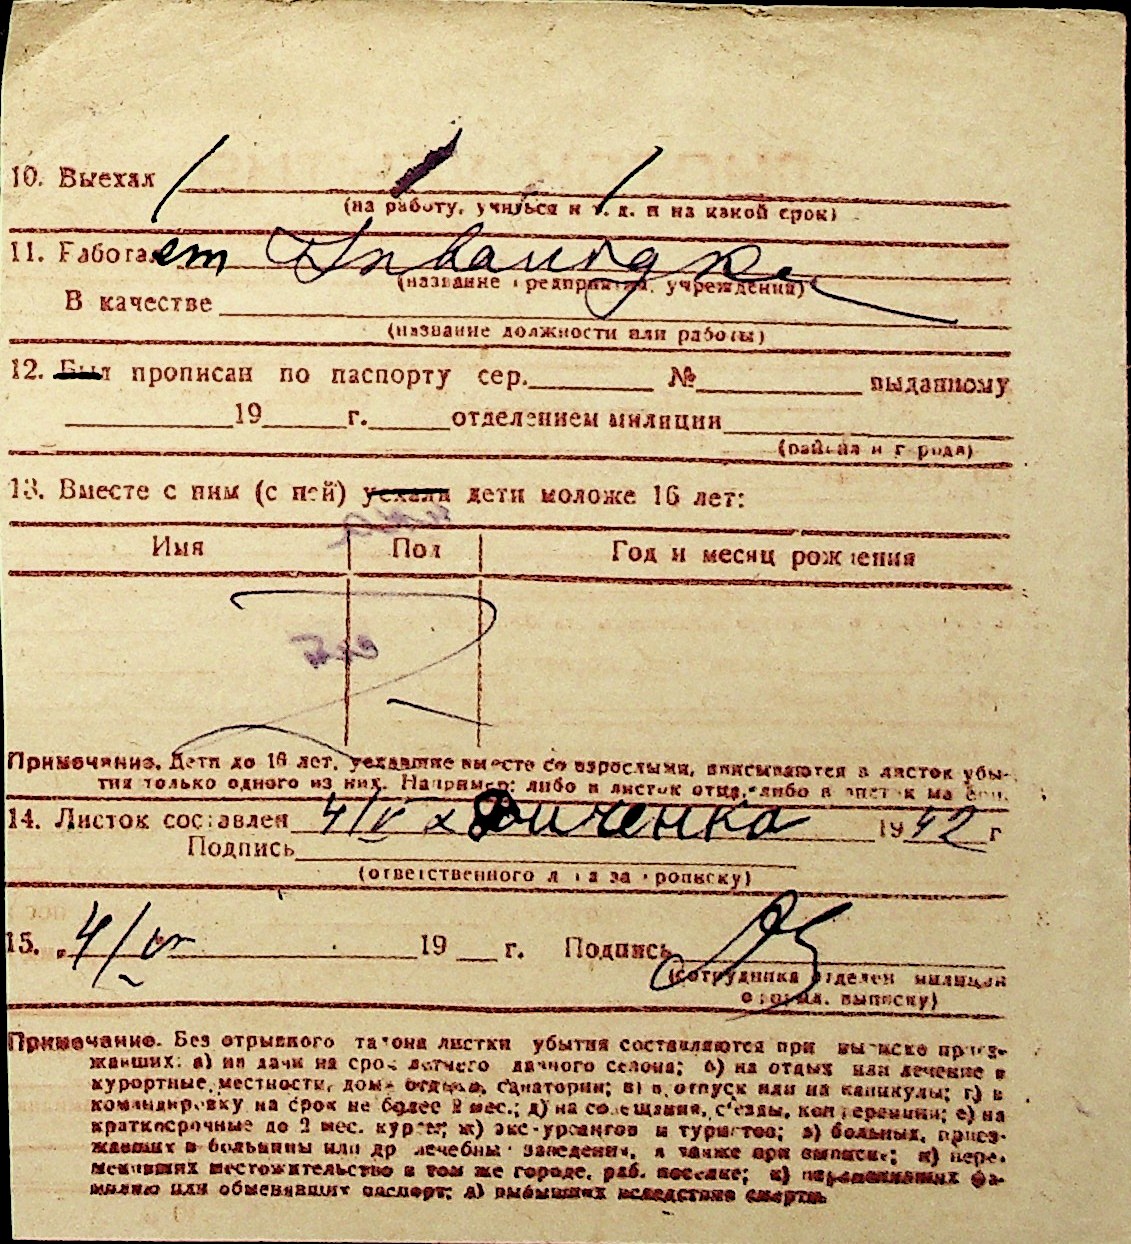 10. Выехал
(на работу, учиться и т. д. и на какой срок)
11. Работает Инвалидка
(название предприятия, учреждения)
В качестве
(название должности или работы)
12. Был прописан по паспорту сер. № выданному
19 г. отделением милиции
(района и города)
13. Вместе с ним (с ней) уехали дети моложе 16 лет:
Имя Пол Год и месяц рождения
Примечание. Дети до 16 лет, уехавшие вместе со взрослыми, вписываются в листок убы-
тия только одного из них. Например: либо в листок отца, либо в листок матери.
14. Листок составлен 4/V 1942 г
Подпись
(ответственного лица за прописку)
15. 4/V 19 г. Подпись
(сотрудника отделен милиции
оформл. выписку)
Примечание. Без отрывного талона листки убытия составляются при выписке приез-
жавших: а) на дачи на срок летнего дачного сезона; б) на отдых или лечение в
курортные местности, дома отдыха, санатории; в) в отпуск или на каникулы; г) в
командировку на срок не более 2 мес.; д) на совещания, съезды, конференции; е) на
краткосрочные до 2 мес. курсы; ж) экскурсантов и туристов; з) больных, приез-
жавших в больницы или др лечебны заведения, а также при выписке; и) пере-
менивших местожительство в том же городе, раб. поселке; к) переменивших фа-
милию или обменявших паспорт; л) выбывших вследствие смерти.